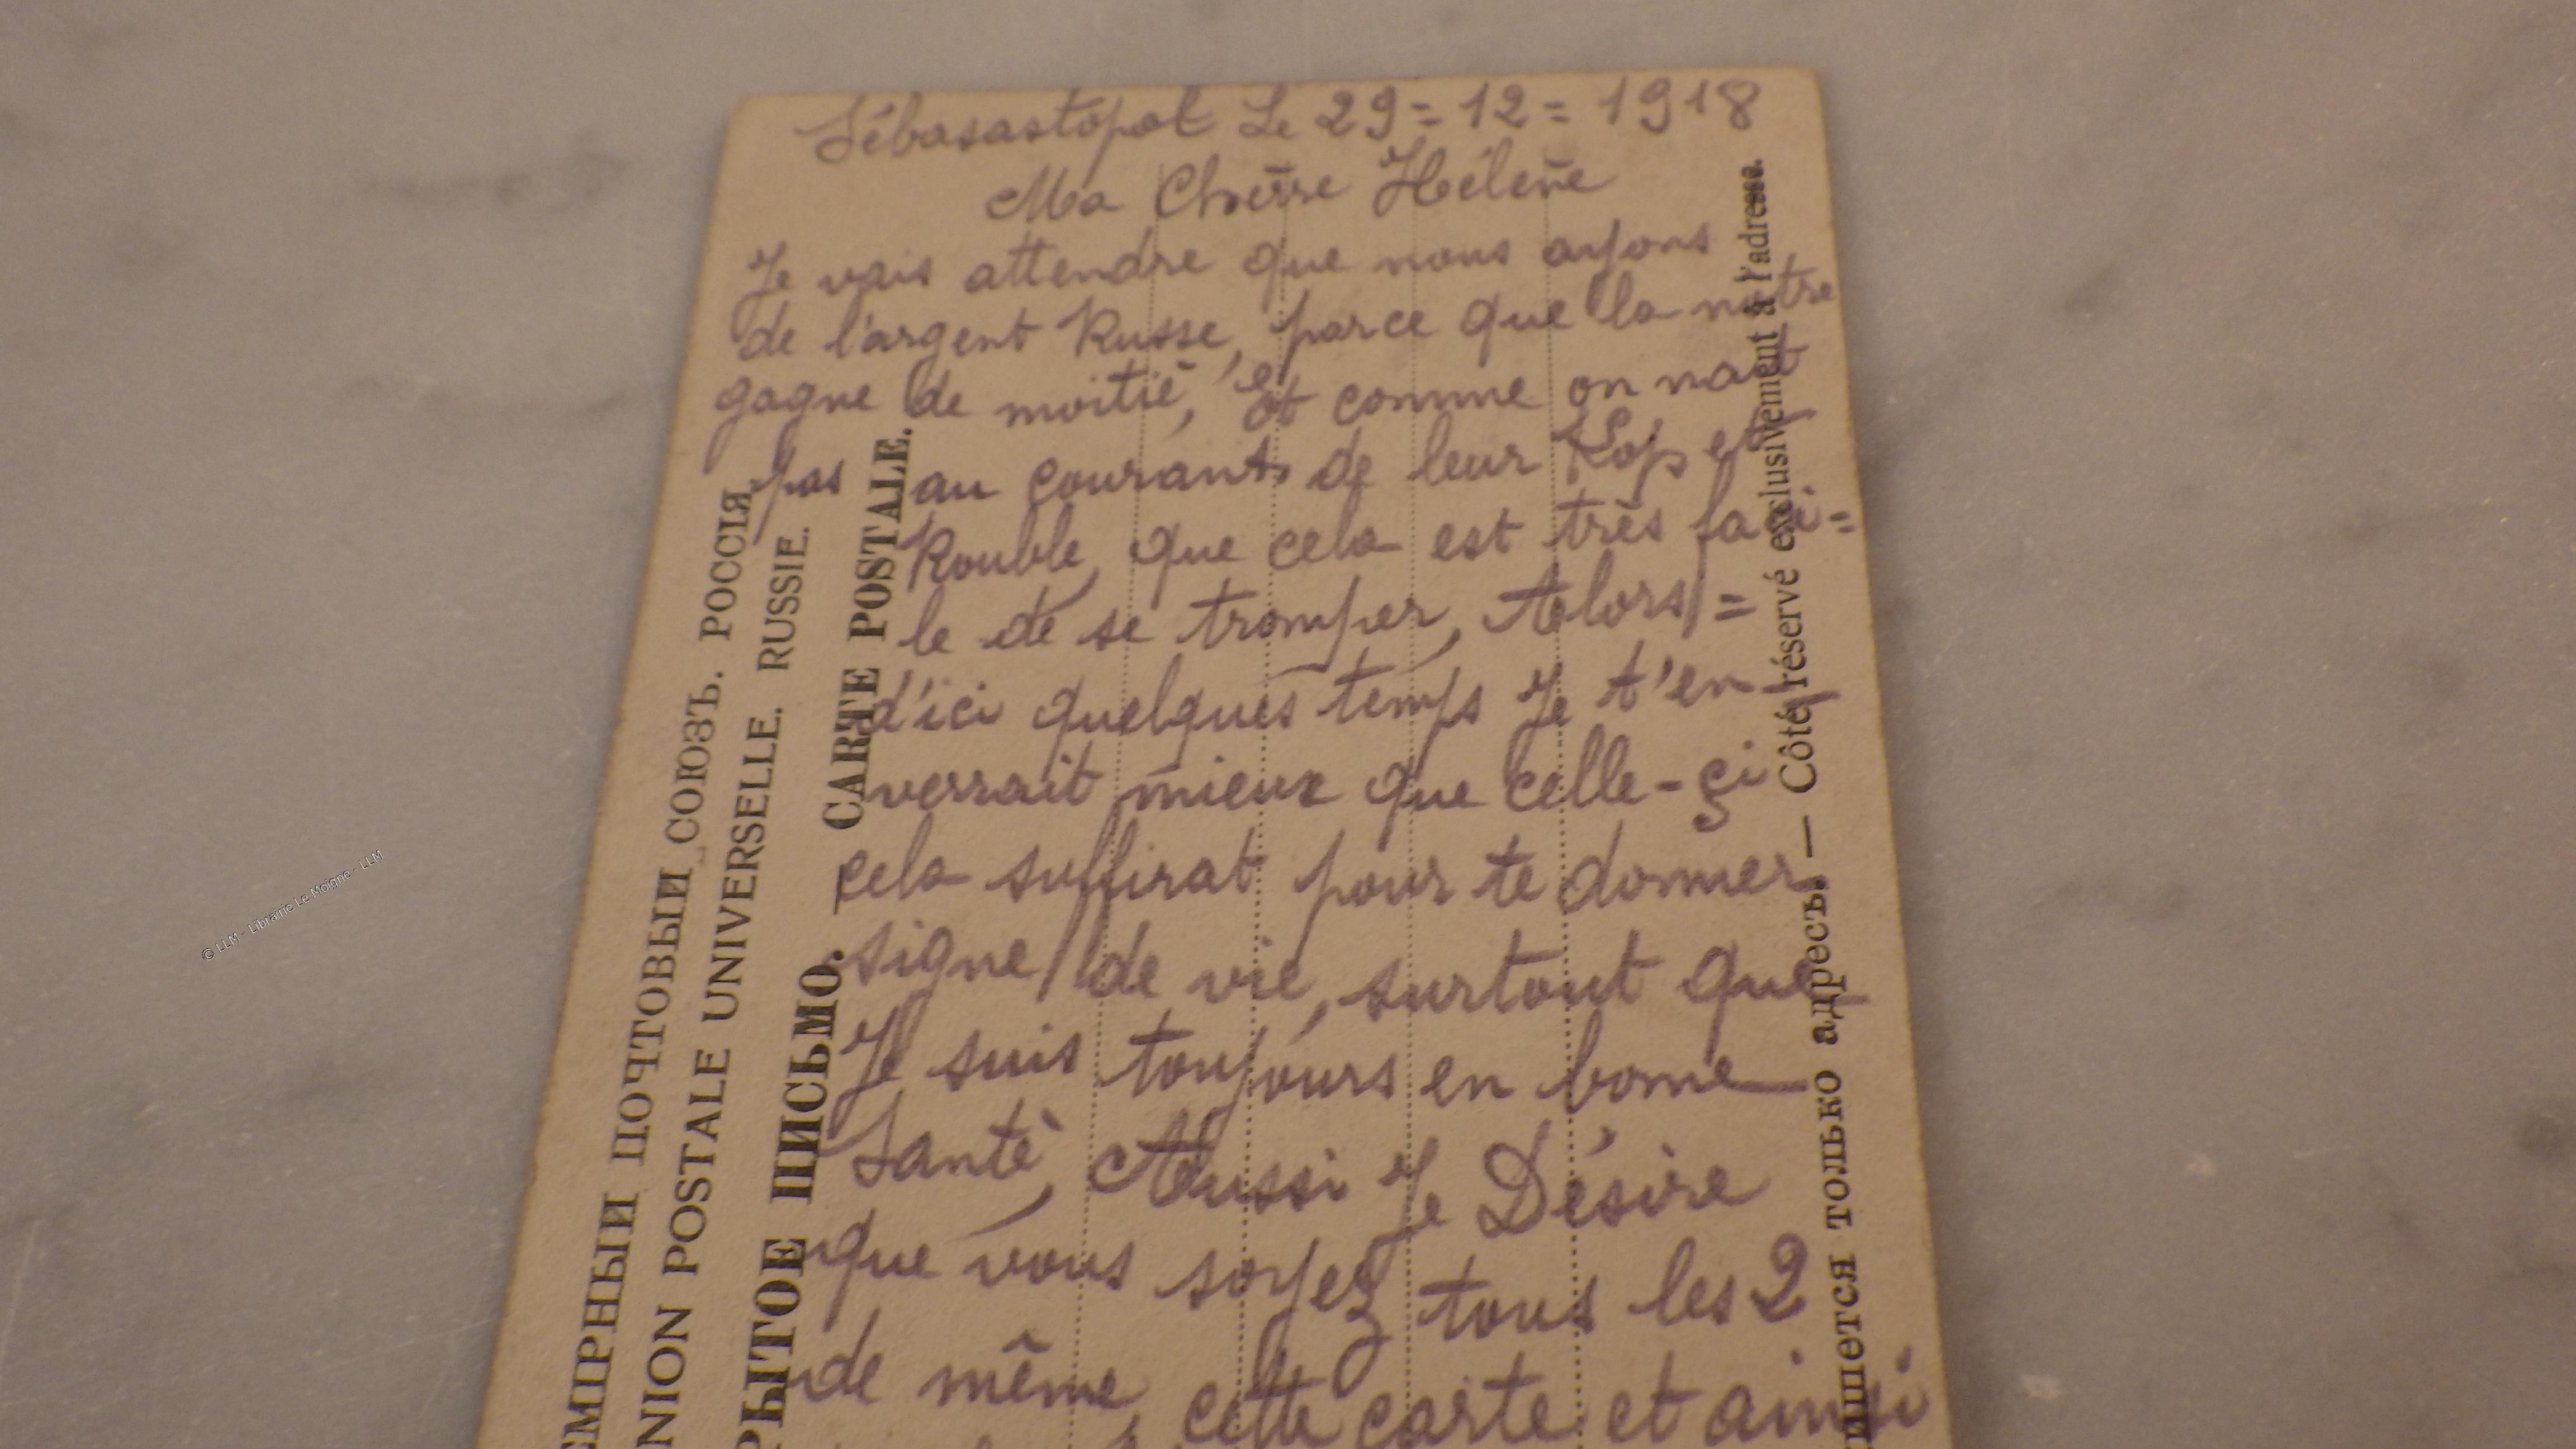 Sébasastopol Le 29=12=1918
Ma Cherre Hélène
Je vais attendre que nous ayons
de l'argent Russe, parce que la notre
gagne de moitié, Et comme on nait
pas au courant de leur Kop et
Rouble, que cela est très faci=
le de se tromper, Alors =
d'ici quelques temps Je t'en-
verrait mieux que celle-çi
cela suffirat pour te donner
signe de vie, surtout que
Je suis toujours en bonne
Santé, Aussi Je Désire
que vous soyez tous les 2
de même, cette carte et ainsi
ЕМІРНЫЙ ПОЧТОВЫЙ СОЮЗЪ. РОССІЯ.
NION POSTALE UNIVERSELLE. RUSSIE.
РЫТОЕ ПИСЬМО. CARTE POSTALE.
ишется только адресъ. — Côté réservé exclusivement à l'adresse.
© LLM - Librairie Le Moigne - LLM